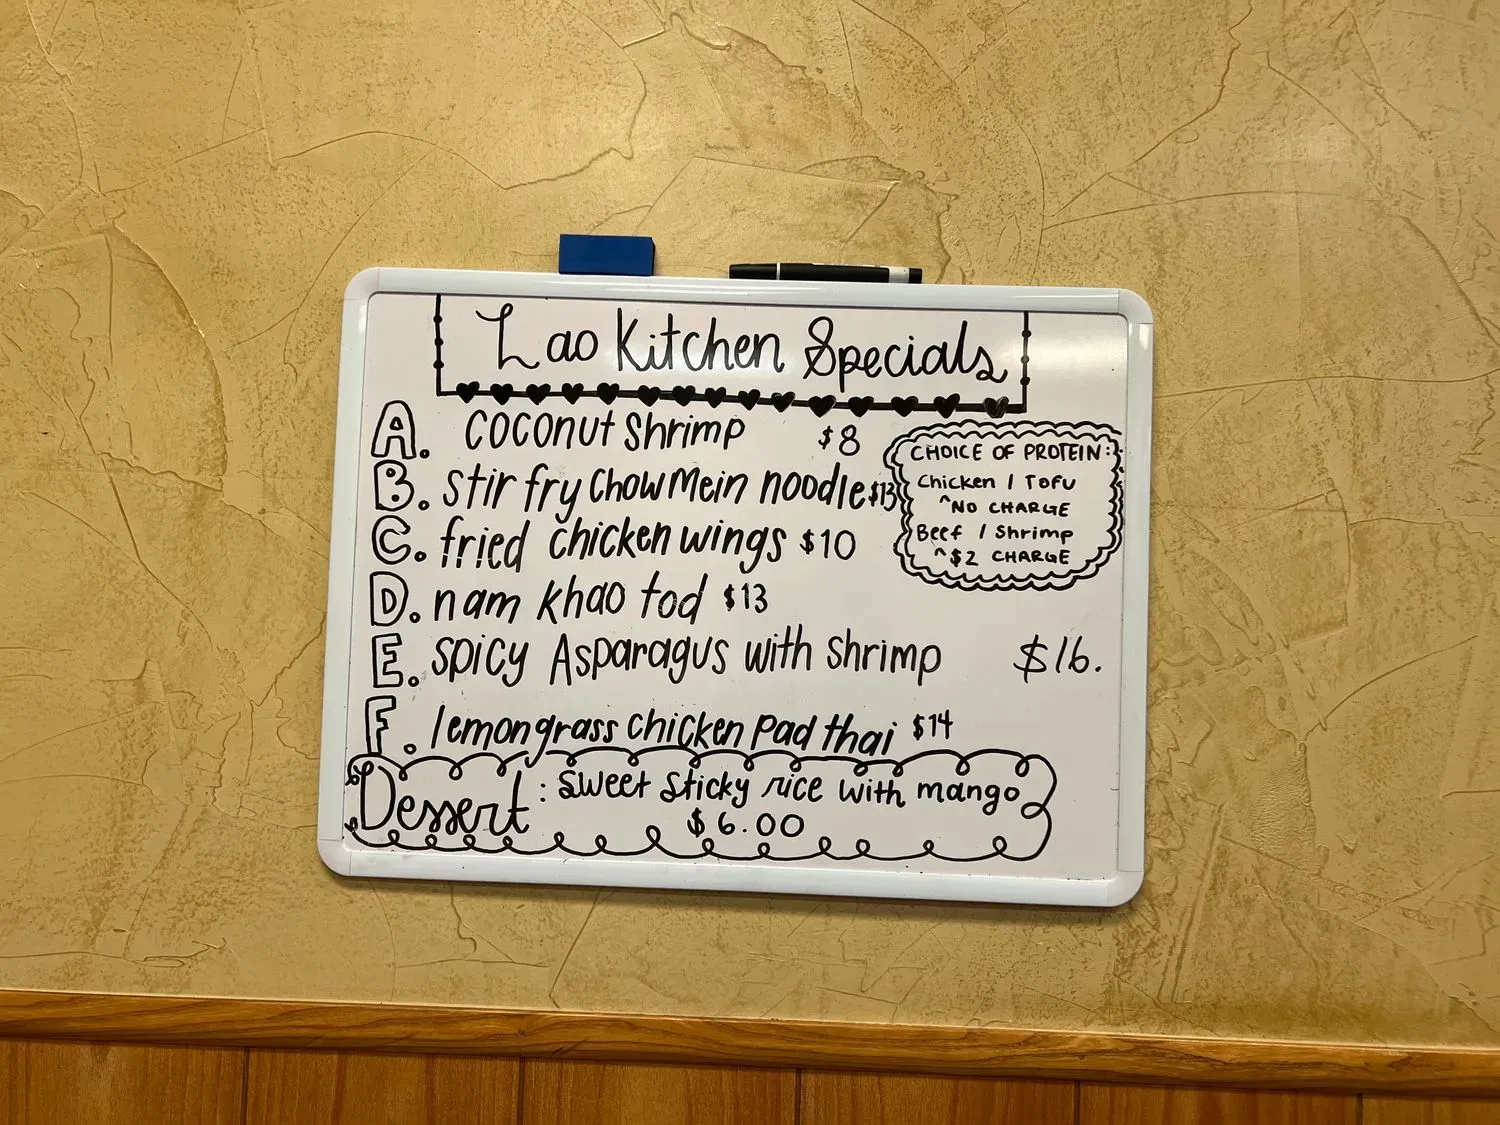 Lao Kitchen Specials
A. coconut shrimp $8
B. stir fry chow mein noodle $13
C. fried chicken wings $10
D. nam khao tod $13
E. spicy Asparagus with shrimp $16.
F. lemongrass chicken pad thai $14
CHOICE OF PROTEIN:
Chicken / TOFU
^NO CHARGE
Beef / Shrimp
^$2 CHARGE
Dessert: sweet sticky rice with mango
$6.00